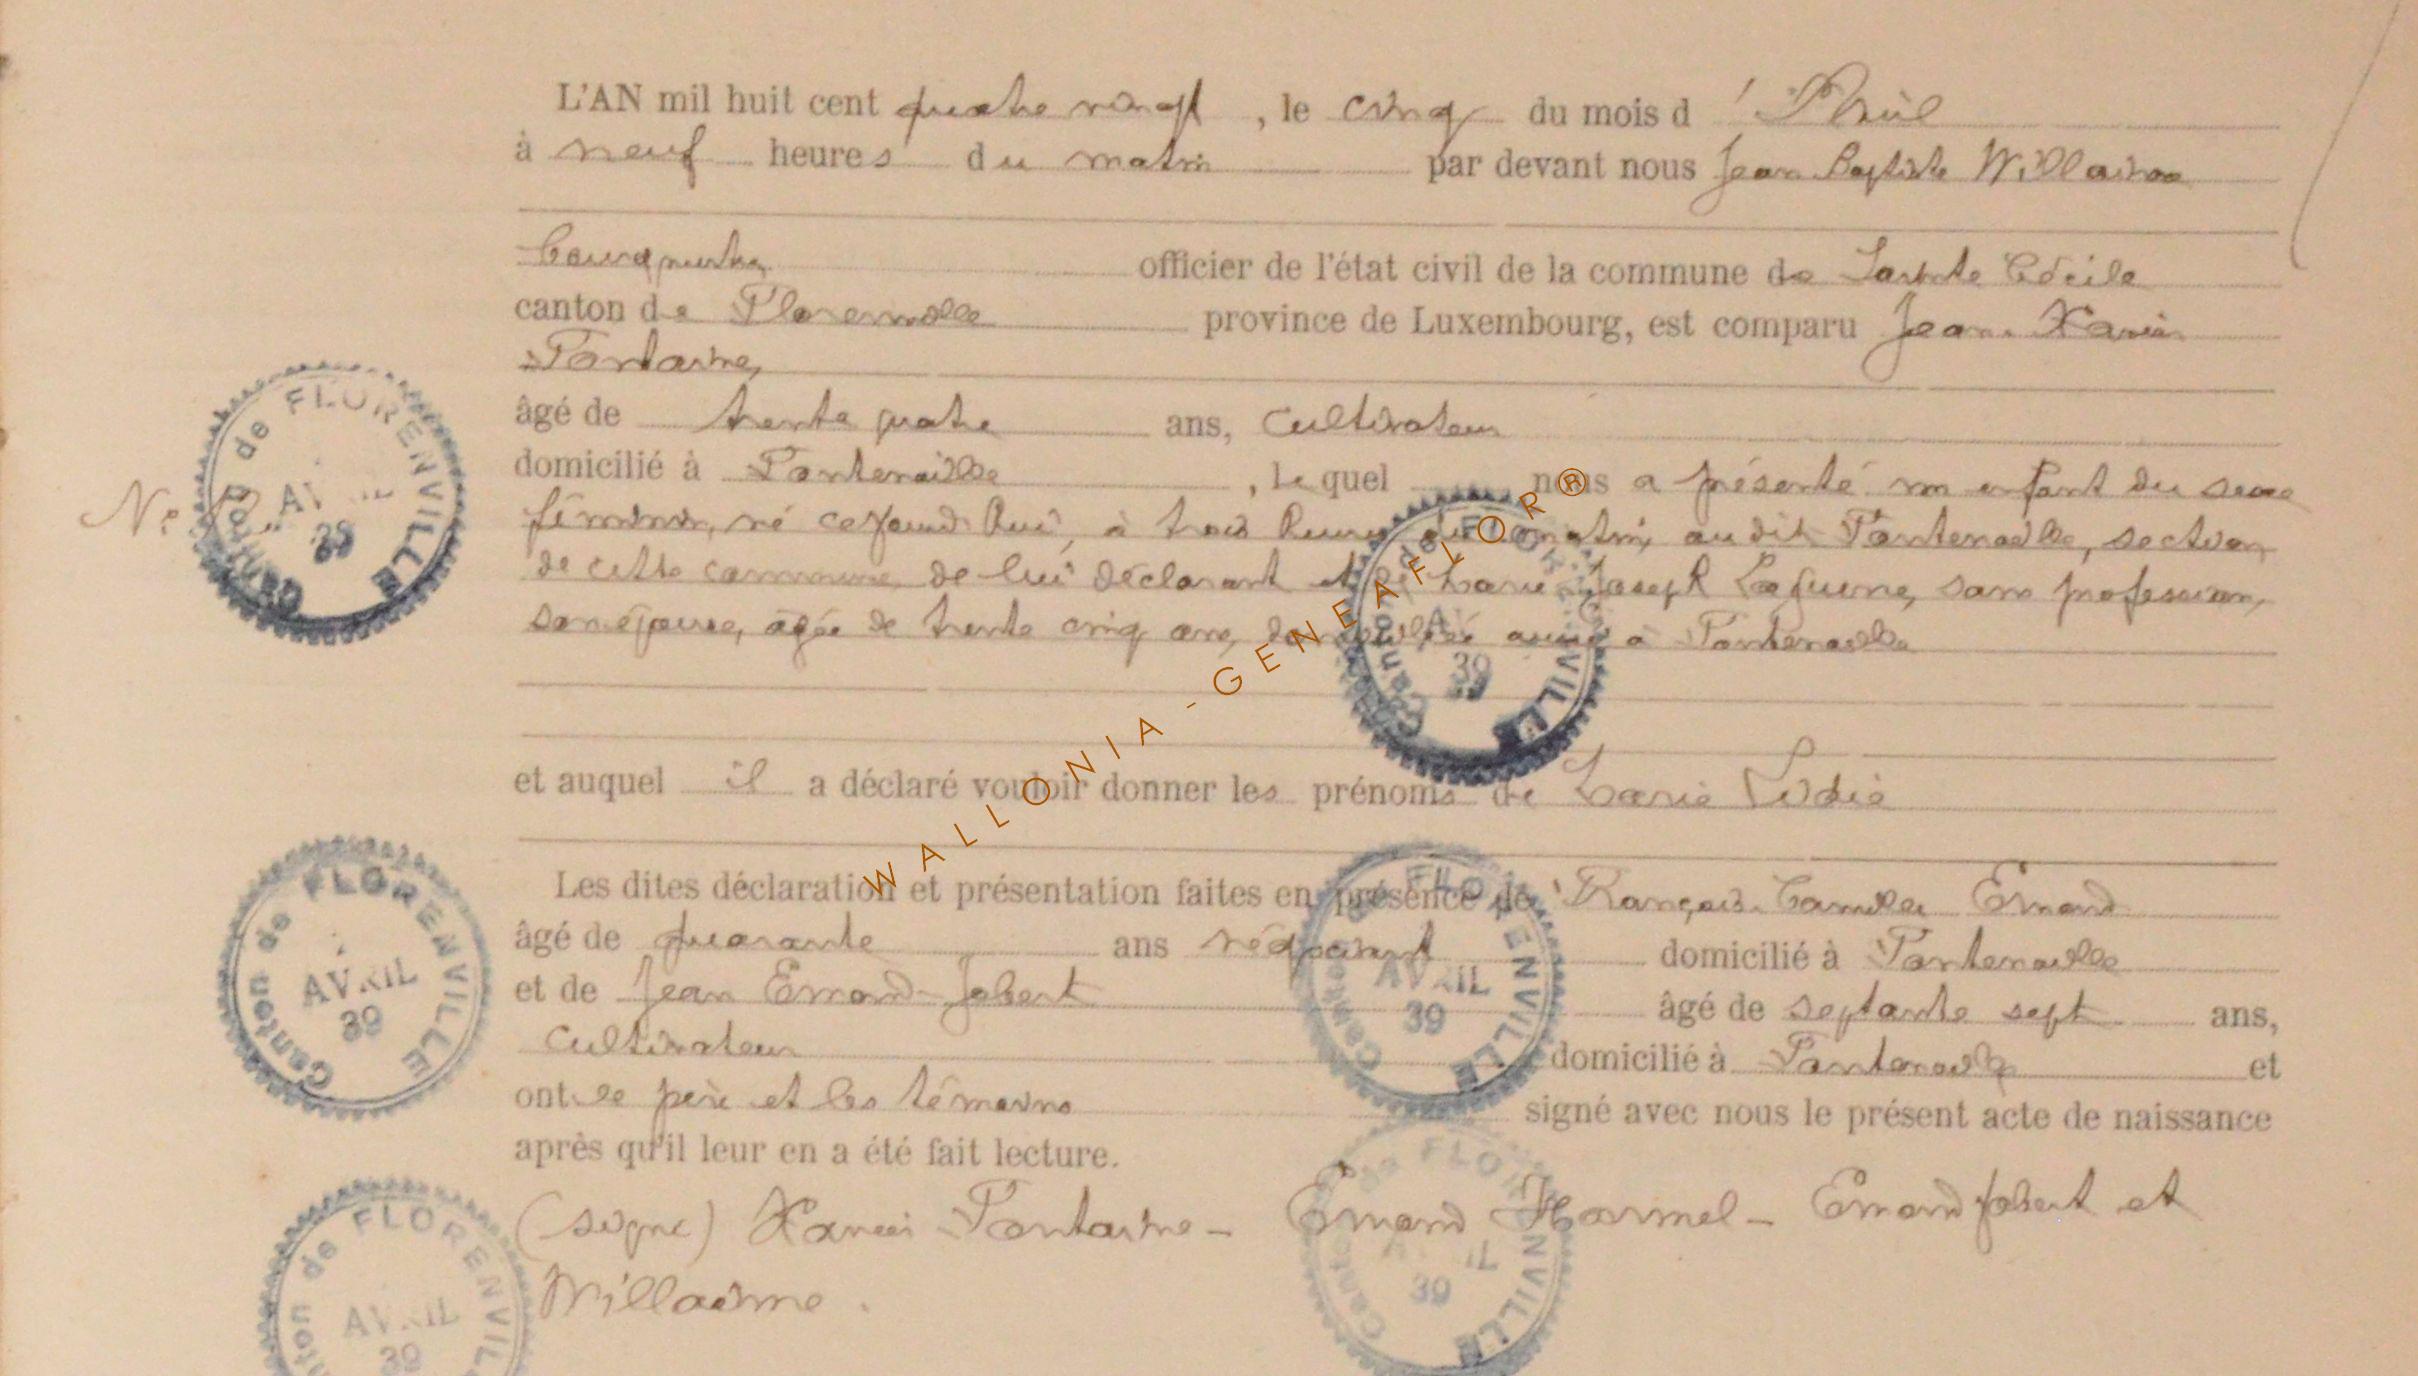 L'AN mil huit cent quatre vingt, le cinq du mois d'Avril
à neuf heures du matin par devant nous Jean Baptiste Willaime
Bourgmestre officier de l'état civil de la commune de Sainte Cécile
canton de Florenville province de Luxembourg, est comparu Jean Xavier
Fontaine,
âgé de trente quatre ans, cultivateur
domicilié à Fontenoille, lequel nous a présenté un enfant du sexe
féminin, né ce jourd'hui, à trois heures du matin, au dit Fontenoille, section
de cette commune, de lui déclarant et de Marie Joseph Laguerre, sans profession,
son épouse, agée de trente cinq ans, domiciliée aussi à Fontenoille
et auquel il a déclaré vouloir donner les prénoms de Marie Lidie
Les dites déclaration et présentation faites en présence de François Camille Emond
âgé de quarante ans négociant domicilié à Fontenoille
et de Jean Emond-Jobert âgé de septante sept ans,
cultivateur domicilié à Fontenoille et
ont le père et les témoins signé avec nous le présent acte de naissance
après qu'il leur en a été fait lecture.
(signé) Xavier Fontaine - Emond Harmel - Emond Jobert et
Willaime.
N°
Canton de FLORENVILLE
AVRIL
39
Canton de FLORENVILLE
39
Canton de FLORENVILLE
AVRIL
39
Canton de FLORENVILLE
AVRIL
39
Canton de FLORENVILLE
AVRIL
39
Canton de FLORENVILLE
39
WALLONIA-GENEAFLOR®